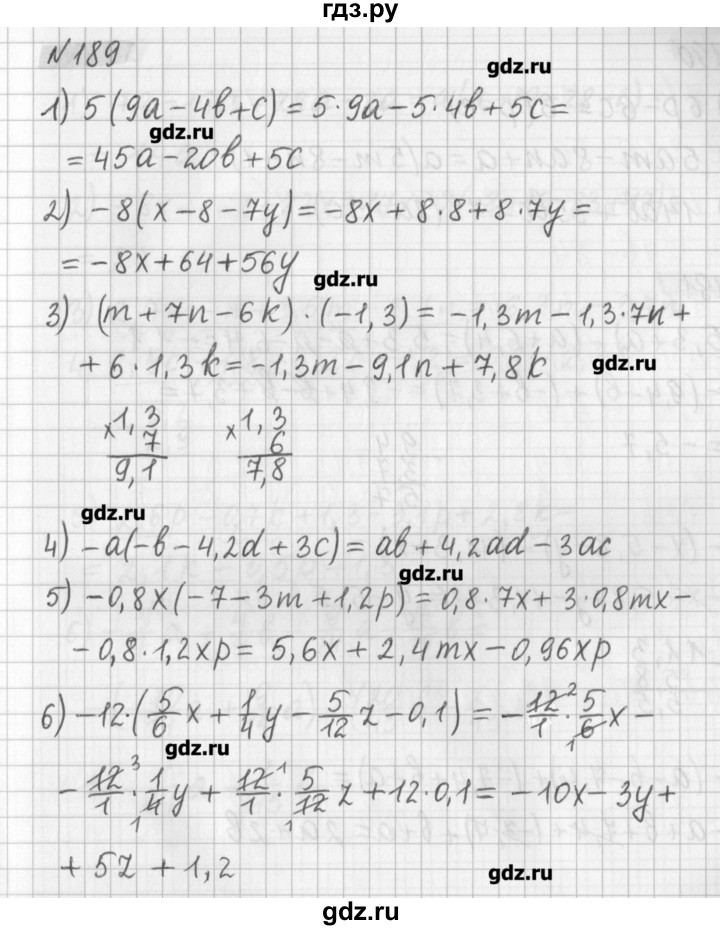 гдз.ру
№189
gdz.ru
1) 5(9a-4b+c)=5·9a-5·4b+5c=
gdz.ru
=45a-20b+5c
2) -8(x-8-7y)=-8x+8·8+8·7y=
=-8x+64+56y
gdz.ru
3) (m+7n-6k)·(-1,3)=-1,3m-1,3·7n+
+6·1,3k=-1,3m-9,1n+7,8k
gdz.ru
×1,3 ×1,3
7 6
9,1 7,8
gdz.ru
4) -a(-b-4,2d+3c)=ab+4,2ad-3ac
gdz.ru
5) -0,8x(-7-3m+1,2p)=0,8·7x+3·0,8mx-
-0,8·1,2xp=5,6x+2,4mx-0,96xp
6) -12·(5/6x+1/4y-5/12z-0,1)=-12/1 2·5/1 6x-
gdz.ru
-12/1 3·1/1 4y+12/1 1·5/1 12z+12·0,1=-10x-3y+
+5z+1,2
gdz.ru
gdz.ru